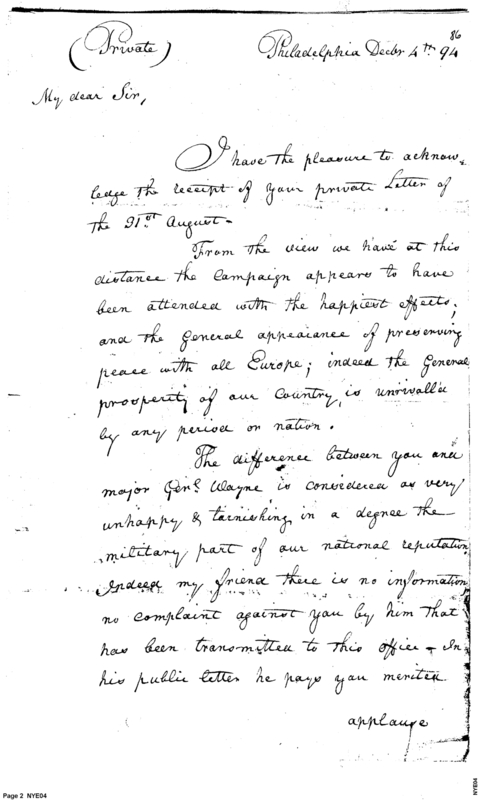 86
(Private) Philadelphia Decbr 4th 94
My dear Sir,
I have the pleasure to acknow-
ledge the receipt of your private Letter of
the 31st August-
From the view we have at this
distance the Campaign appears to have
been attended with the happiest effects;
and the General appearance of preserving
peace with all Europe; indeed the General
prosperity of our Country, is unrivall'd
by any period or nation.
The difference between you and
major Genl Wayne is considered as very
unhappy & tarnishing, in a degree the
military part of our national reputation
Indeed my friend there is no information,
no complaint against you by him that
has been transmitted to this office - In
his public letter he pays you merited
applause
Page 2 NYE04
NYE04